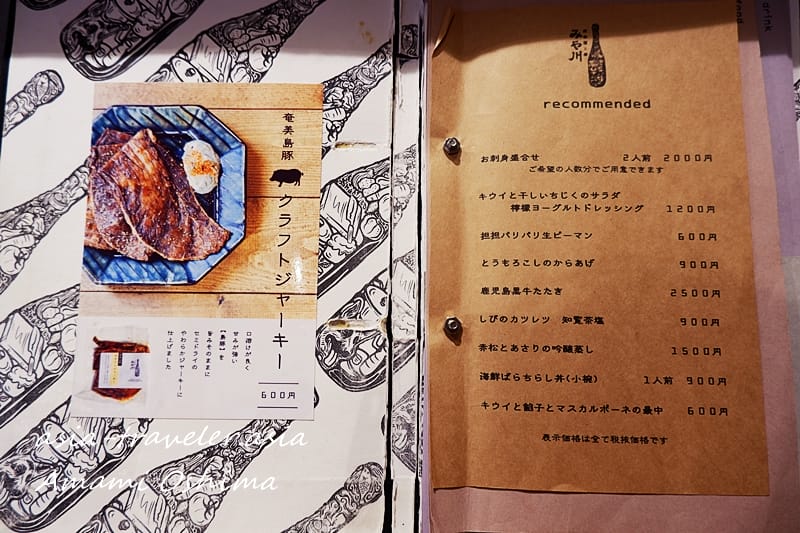 奄美島豚
クラフトジャーキー
口溶けが良く
甘みが強い
【島豚】を
旨みそのままに
セミドライの
やわらかジャーキーに
仕上げました
600円
みや川
recommended
お刺身盛合せ 2人前 2000円
ご希望の人数分でご用意できます
キウイと干しいちじくのサラダ
檸檬ヨーグルトドレッシング 1200円
担担パリパリ生ピーマン 600円
とうもろこしのからあげ 900円
鹿児島黒牛たたき 2500円
しびのカツレツ 知覧茶塩 900円
赤松とあさりの吟醸蒸し 1500円
海鮮ばらちらし丼(小椀) 1人前 900円
キウイと餡子とマスカルポーネの最中 600円
表示価格は全て税抜価格です
drink
food
asia traveler asia
Amami Oshima